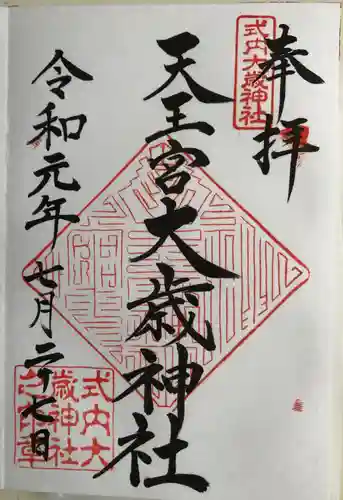 奉拝
式内大歳神社
天王宮大歳神社
令和元年七月二十七日
式内大
歳神社